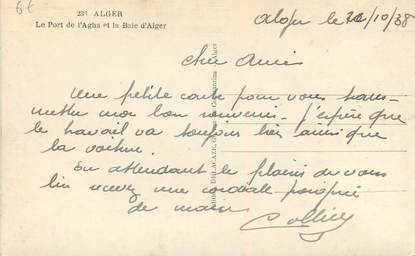 6f
231 ALGER
Le Port de l'Agha et la Baie d'Alger
Alger le 22/10/38
cher Ami
Une petite carte pour vous trans-
mettre mon bon souvenir - J'espère que
le travail va toujours bien ainsi que
la voiture.
En attendant le plaisir de vous
lire recevez une cordiale poignée
de main